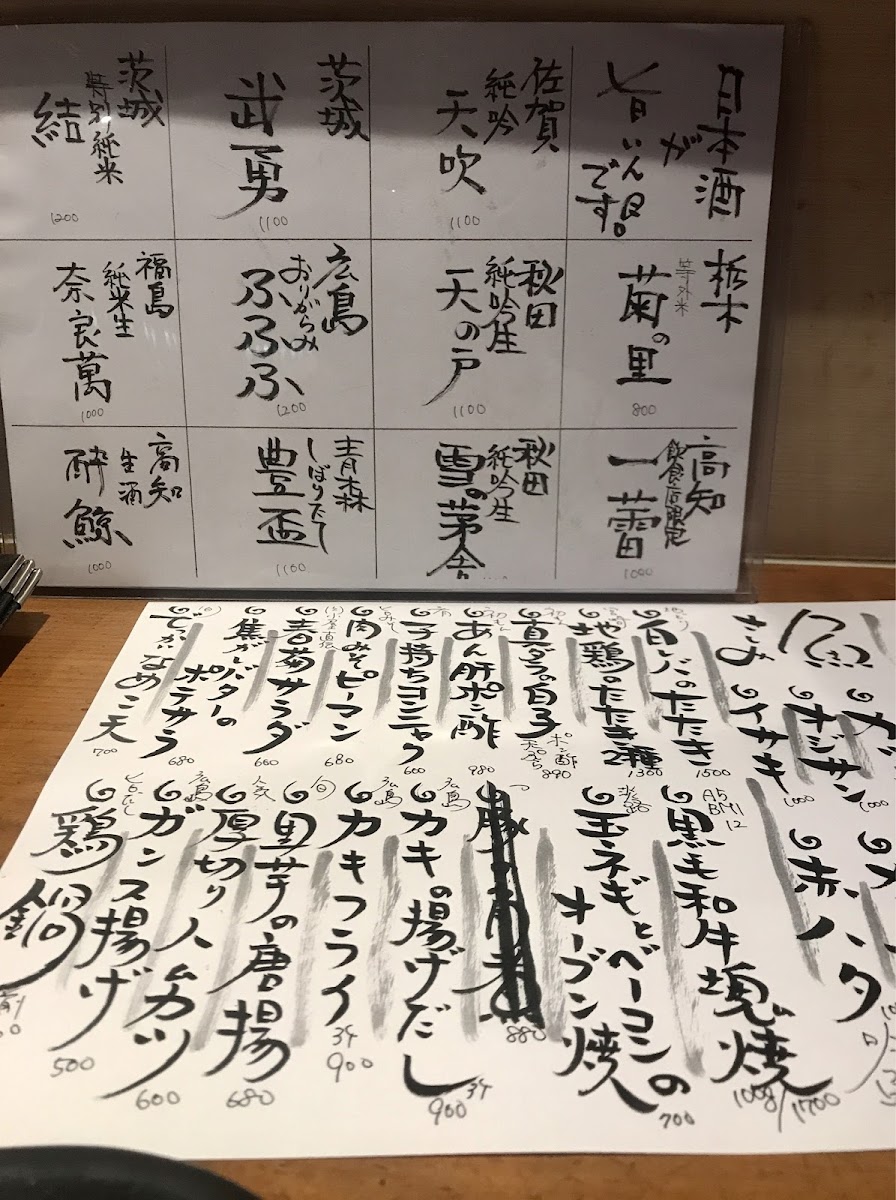 日本酒
が
旨いん
です。
佐賀
純吟
天吹
1100
茨城
武勇
1100
茨城
特別純米
結
1200
栃木
等外米
菊の里
800
秋田
純吟生
天の戸
1100
広島
おりがらみ
ふふふ
1200
福島
純米生
奈良萬
1000
高知
飲食店限定
一蕾
1000
秋田
純吟生
雪の茅舎
青森
しぼりたて
豊盃
1100
高知
生酒
酔鯨
1000
さしみ
オジサン
イサキ
白レバのたたき
1500
地鶏のたたき2種
1300
真ダラの白子
ポン酢
天ぷら
890
あん肝ポン酢
980
子持ちコンニャク
600
肉みそピーマン
680
春菊サラダ
660
焦がしバターの
ポテサラ
680
でっかいなめこ天
700
赤ハタ
A5
BMS
12
黒毛和牛塊焼
100g/1700
淡路
玉ネギとベーコンの
オーブン焼
700
880
広島
カキの揚げだし
3ヶ
900
広島
カキフライ
3ヶ
900
旬
里芋の唐揚
680
人気
厚切りハムカツ
600
広島
ガンス揚げ
500
鶏鍋